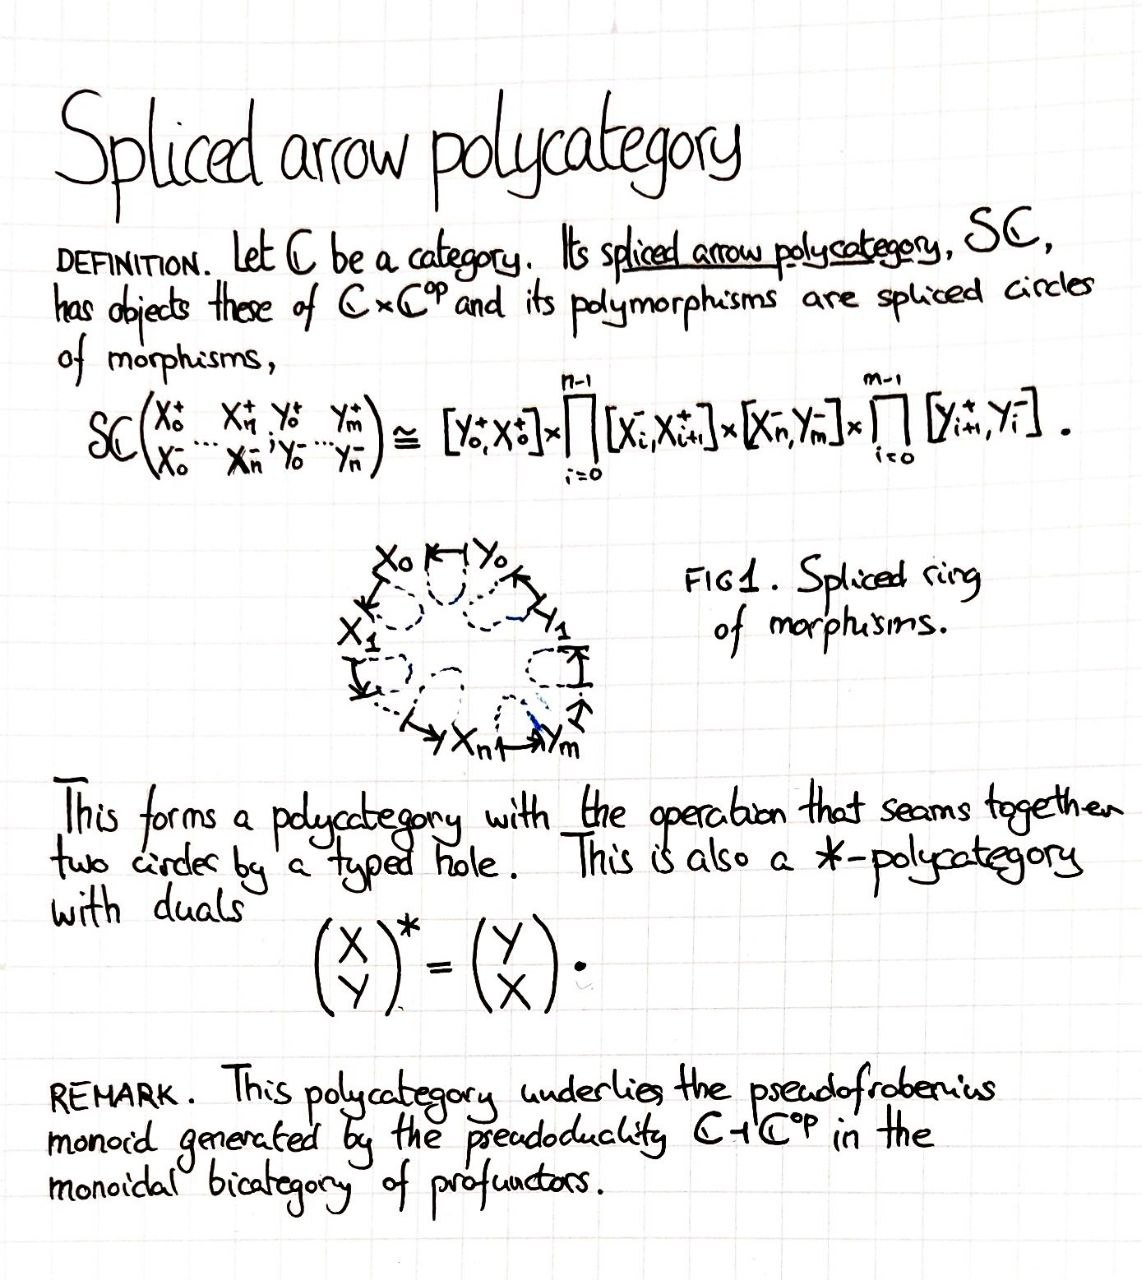 Spliced arrow polycategory
DEFINITION. Let ℂ be a category. Its spliced arrow polycategory, Sℂ,
has objects these of ℂ×ℂᵒᵖ and its polymorphisms are spliced circles
of morphisms,
Sℂ(X₀⁺ ... Xₙ⁺ ; Y₀⁺ ... Yₘ⁺ / X₀⁻ ... Xₙ⁻ ; Y₀⁻ ... Yₙ⁻) ≅ [Y₀⁺, X₀⁺] × ∏ᵢ₌₀ⁿ⁻¹ [Xᵢ⁻, Xᵢ₊₁⁺] × [Xₙ⁻, Yₘ⁻] × ∏ᵢ₌₀ᵐ⁻¹ [Yᵢ₊₁⁺, Yᵢ⁻] .
X₀ Y₀
X₁ Y₁
Xₙ Yₘ
FIG 1. Spliced ring
of morphisms.
This forms a polycategory with the operation that seams together
two circles by a typed hole. This is also a *-polycategory
with duals
(X / Y)* = (Y / X) .
REMARK. This polycategory underlies the pseudofrobenius
monoid generated by the pseudoduality ℂ ⊣ ℂᵒᵖ in the
monoidal bicategory of profunctors.